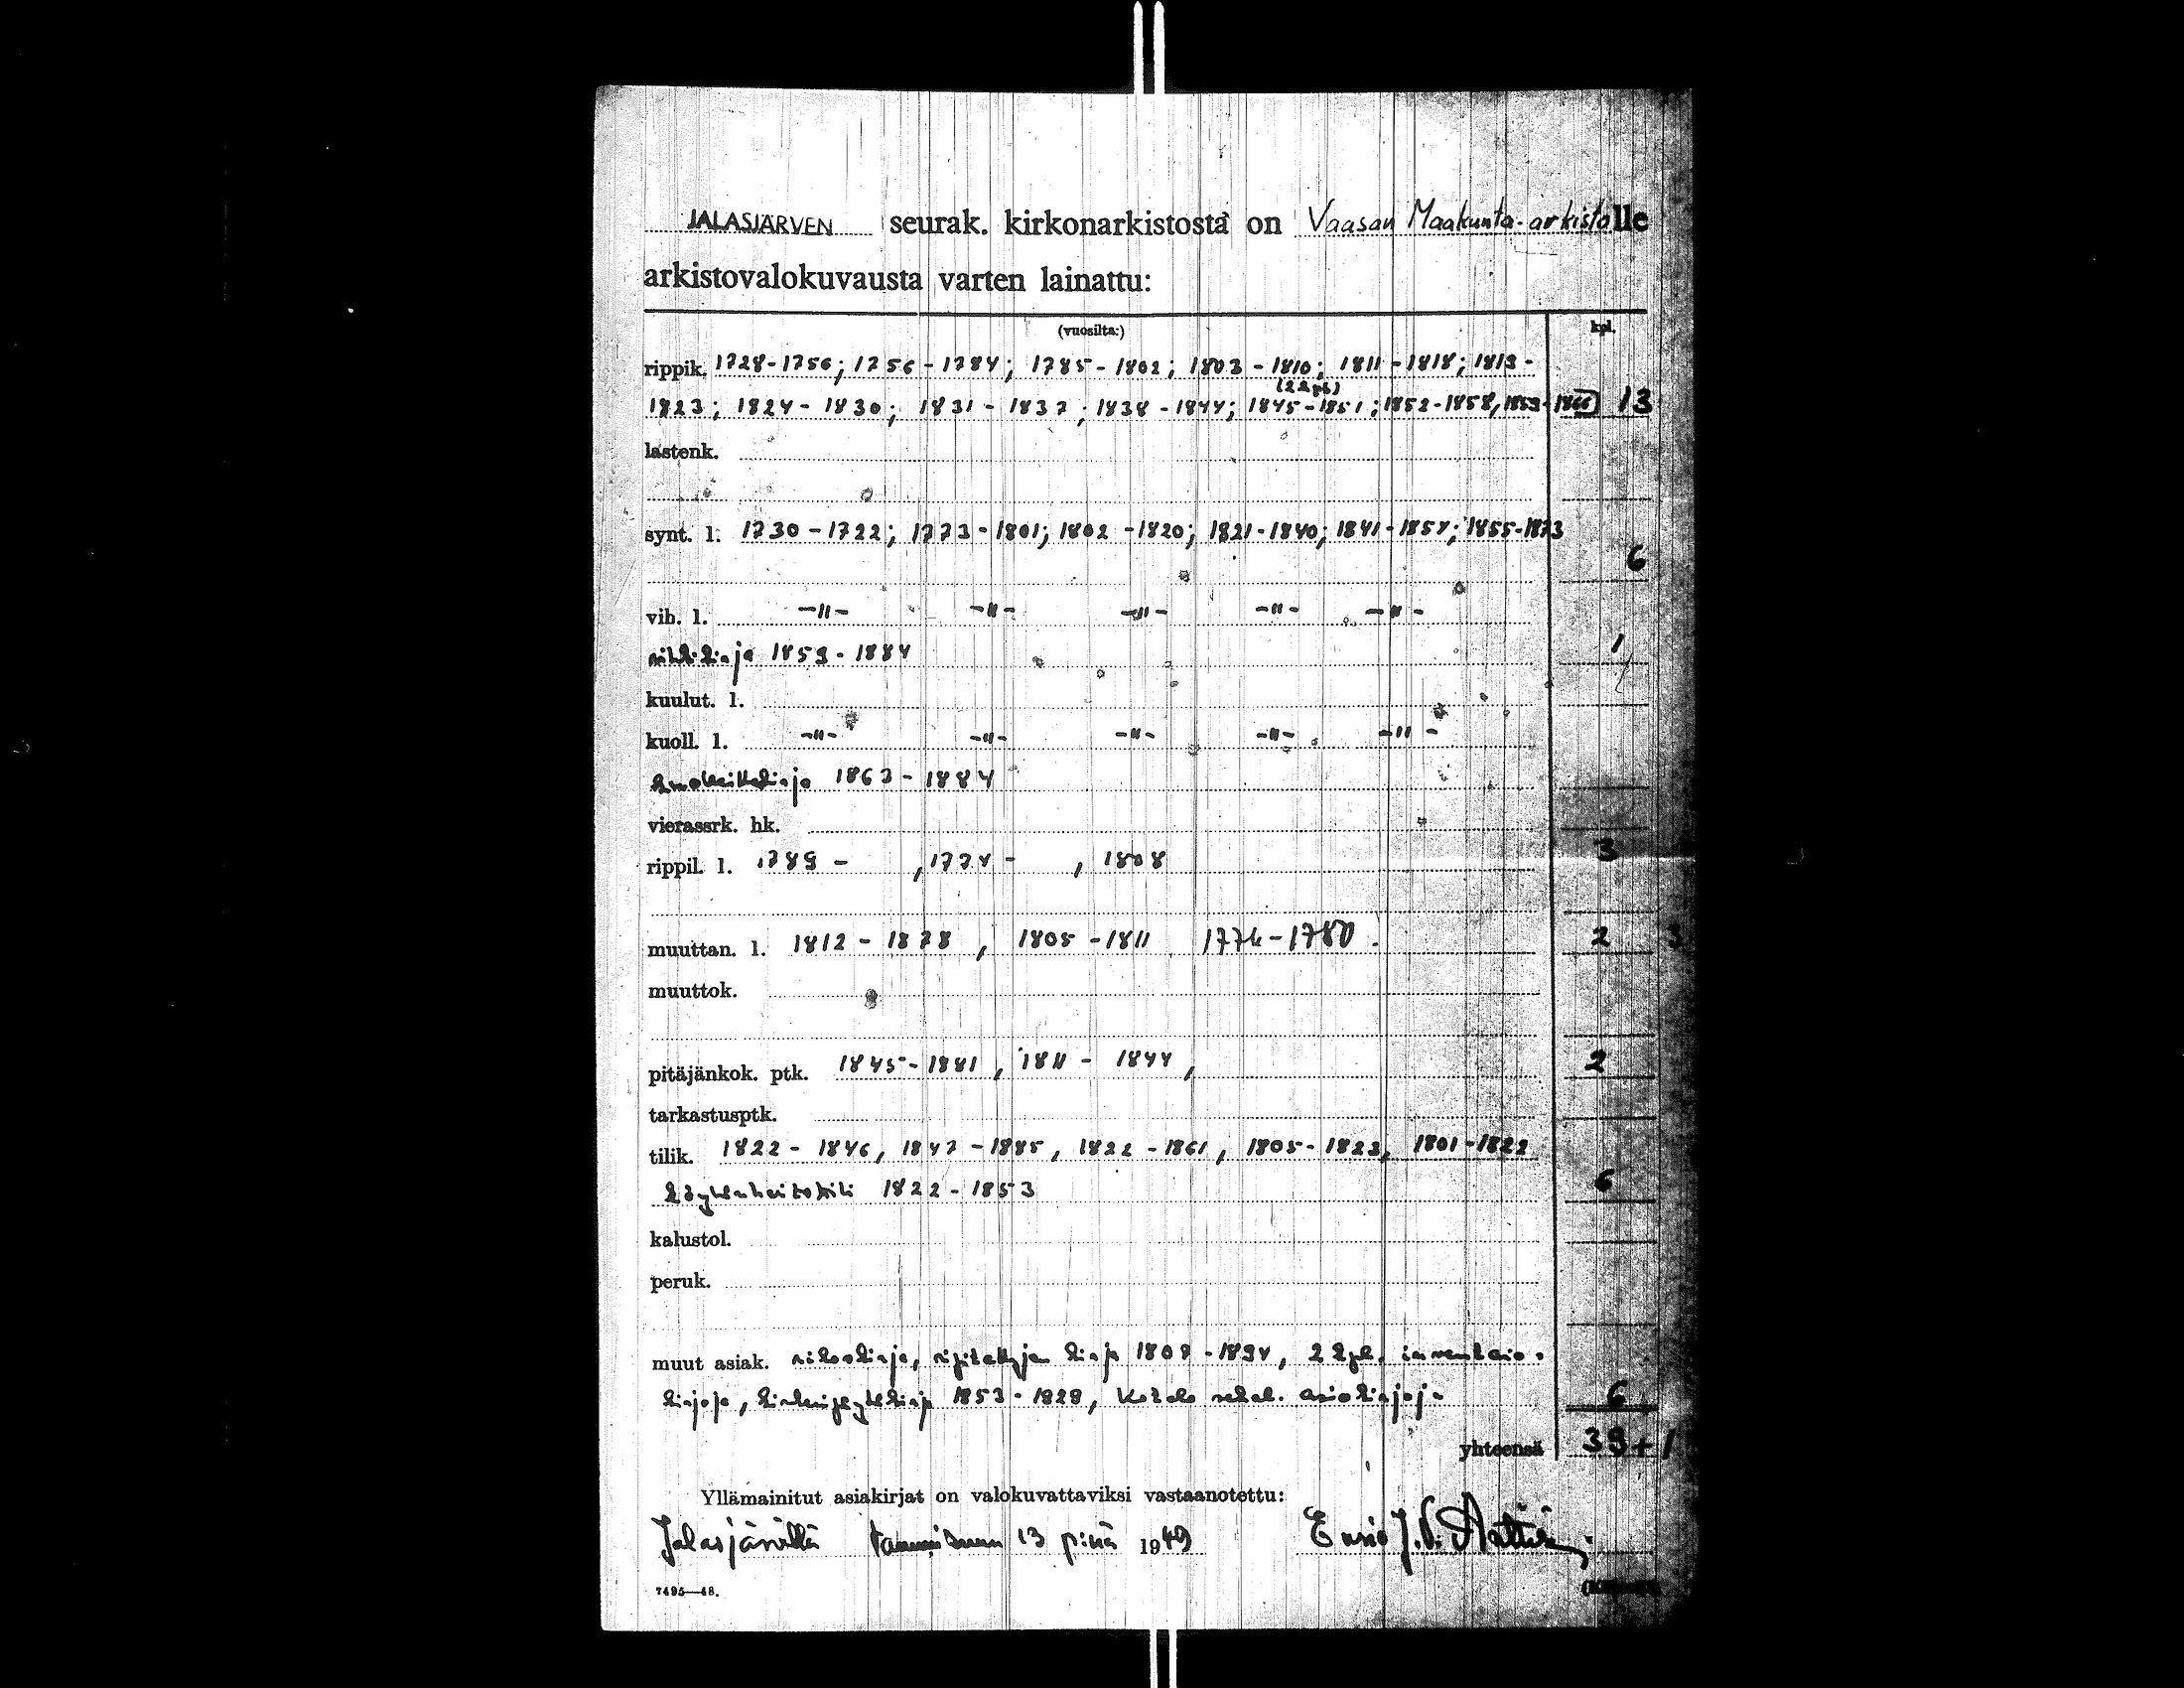 JALASJÄRVEN seurak. kirkonarkistosta on Vaasan Maakunta-arkistolle
arkistovalokuvausta varten lainattu:
(vuosilta:) kpl.
rippik. 1728-1756; 1756-1784; 1785-1802; 1803-1810; 1811-1818; 1819-
(2 kpl)
1823; 1824-1830; 1831-1837; 1838-1844; 1845-1851; 1852-1858, 1859-1866 13
lastenk.
synt. l. 1730-1722; 1773-1801; 1802-1820; 1821-1840; 1841-1854; 1855-1873
6
vih. l. -"- -"- -"- -"- -"-
vihkikirja 1859-1884 1
kuulut. l.
kuoll. l. -"- -"- -"- -"- -"-
1863-1884
vierassrk. hk.
rippil. l. 1789- , 1774- , 1808 3
muuttan. l. 1812-1878, 1805-1811 1774-1780. 2 3
muuttok.
pitäjänkok. ptk. 1845-1881, 1811-1844, 2
tarkastusptk.
tilik. 1822-1846, 1847-1885, 1822-1861, 1805-1823, 1801-1822
1822-1853 6
kalustol.
peruk.
muut asiak. rikoskirja, kirja 1894, 2 kpl. inventaio-
kirjoja, 1853- asiakirjoja 6
yhteensä 39+1
Yllämainitut asiakirjat on valokuvattaviksi vastaanotettu:
Jalasjärvellä tammikuun 13 p:nä 1949 Ensio J.
7495—48.